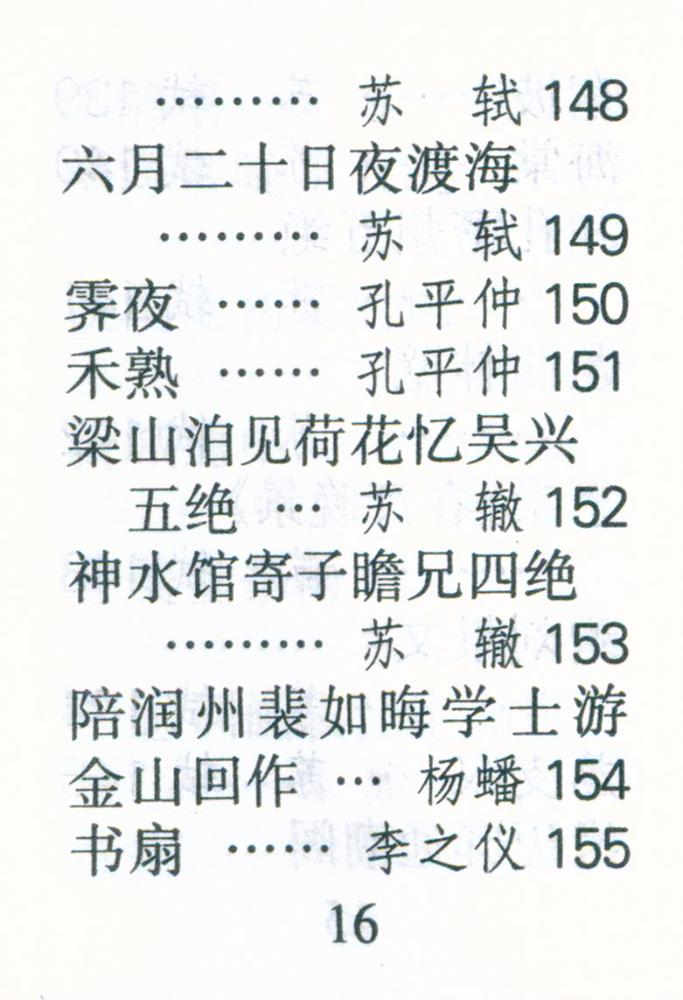 ……… 苏 轼 148
六月二十日夜渡海
……… 苏 轼 149
霁夜 …… 孔平仲 150
禾熟 …… 孔平仲 151
梁山泊见荷花忆吴兴
五绝 … 苏 辙 152
神水馆寄子瞻兄四绝
……… 苏 辙 153
陪润州裴如晦学士游
金山回作 … 杨蟠 154
书扇 …… 李之仪 155
16